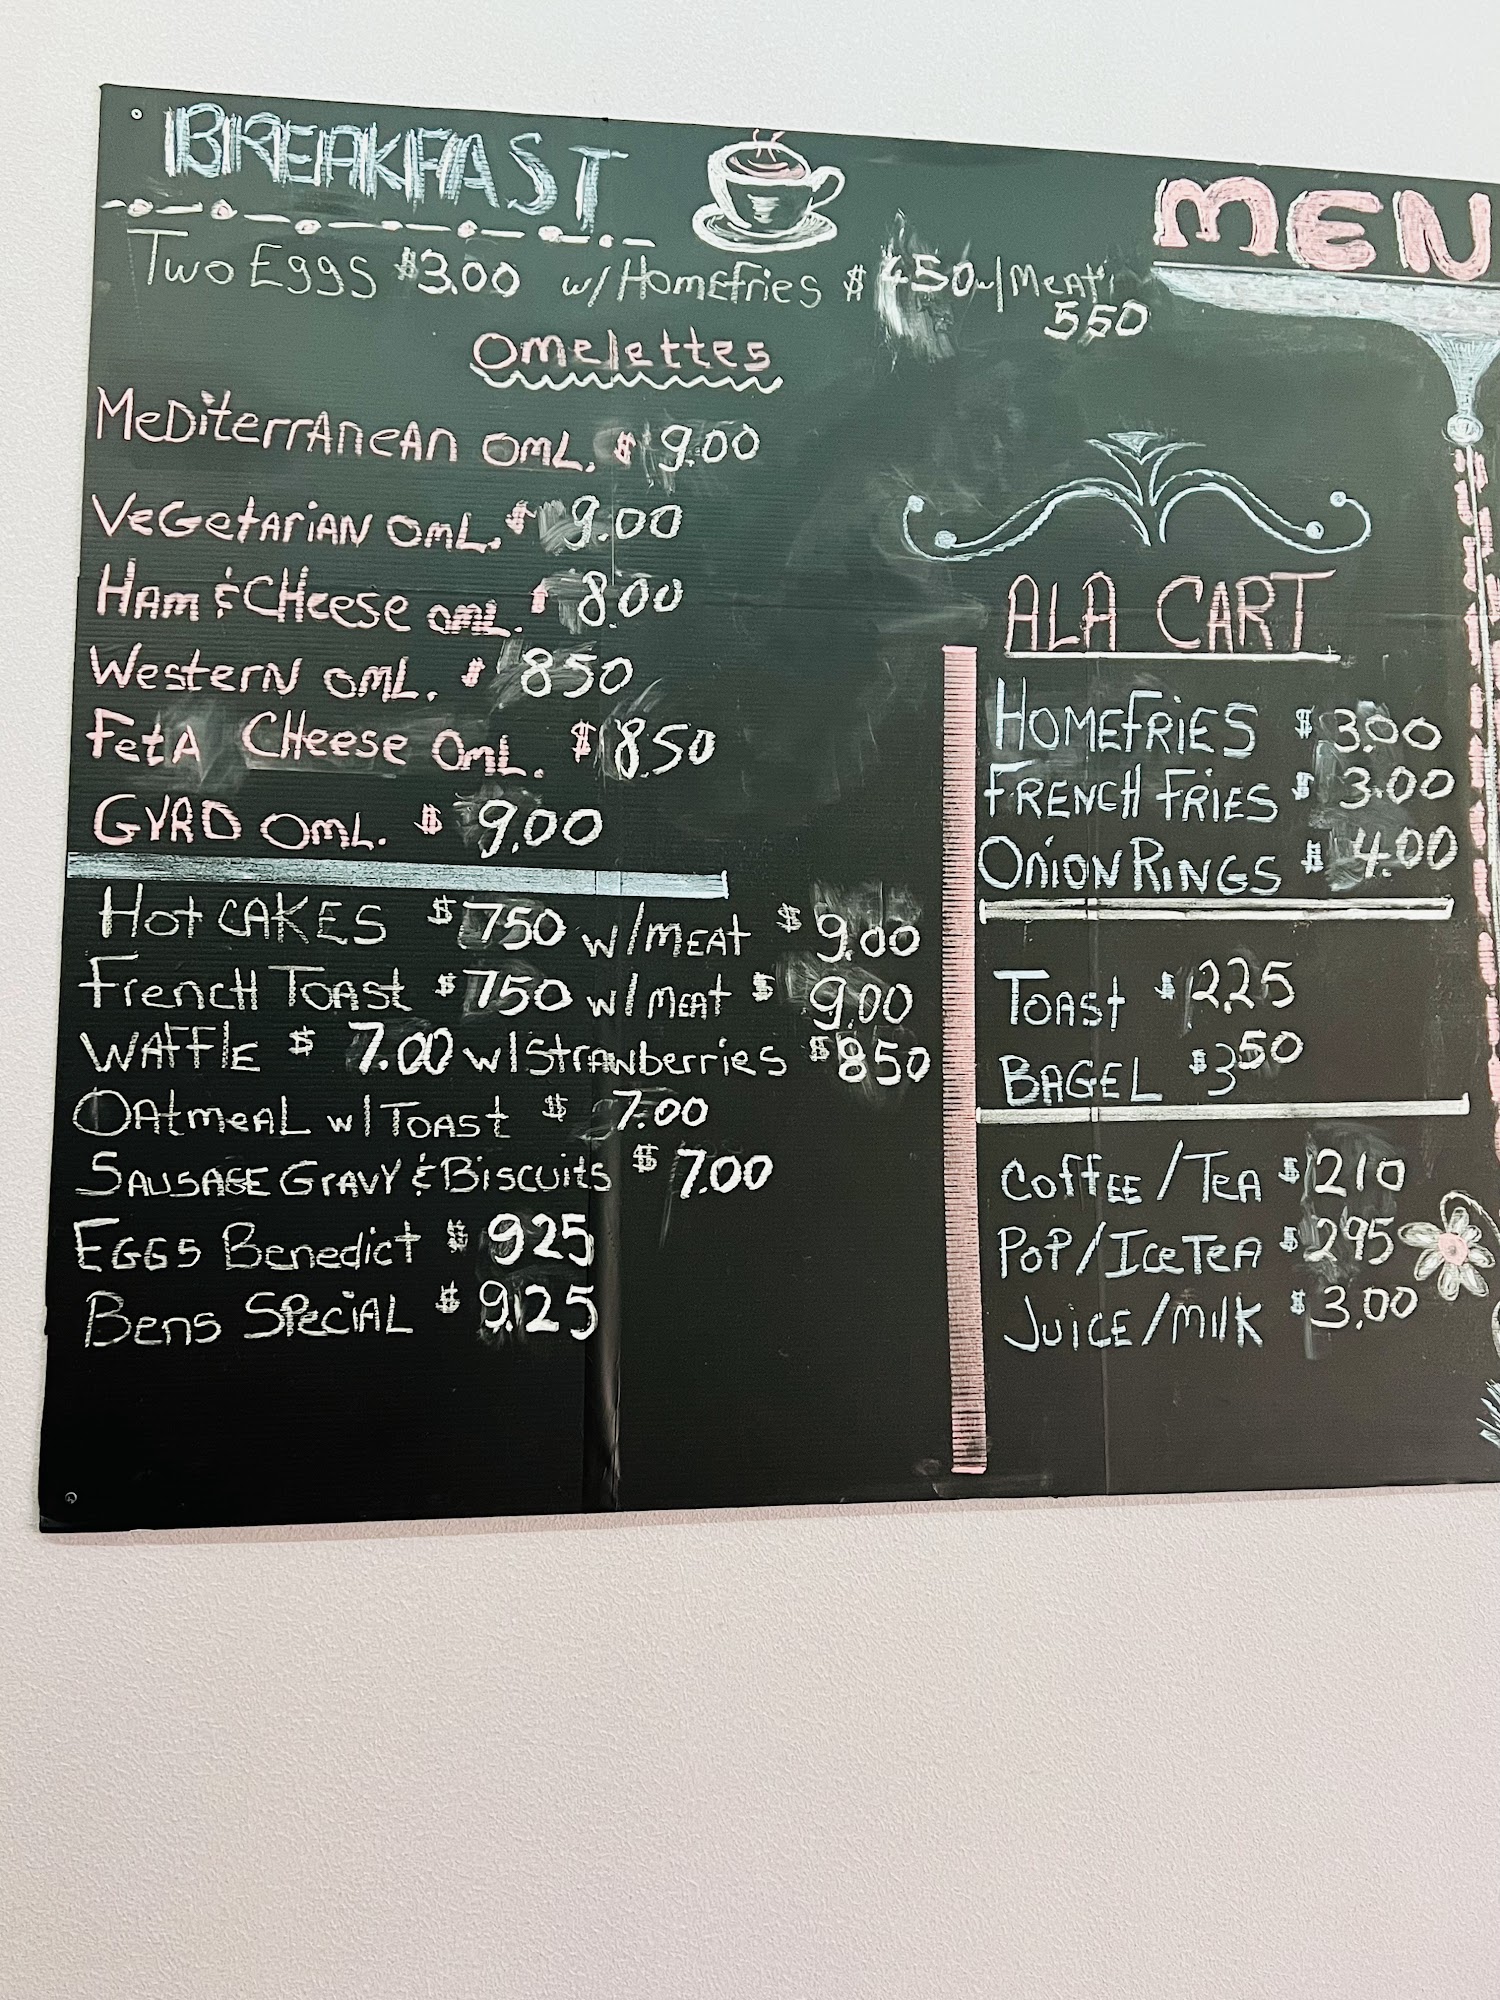 BREAKFAST
Two Eggs $3.00 w/Homefries $450 w/Meat
550
Omelettes
Mediterranean OmL. $ 9.00
Vegetarian OmL. $ 9.00
Ham & Cheese OmL. $ 8.00
Western OmL. $ 850
Feta Cheese OmL. $ 8.50
GYRO OmL. $ 9.00
Hot CAKES $ 750 w/MEAT $ 9.00
French Toast $ 750 w/MEAT $ 9.00
WAFFLE $ 7.00 w/Strawberries $ 850
Oatmeal w/Toast $ 7.00
SAUSAGE GRAVY & Biscuits $ 7.00
EGGS Benedict $ 925
Bens Special $ 9.25
MEN
ALA CART
HOMEFRIES $ 3.00
FRENCH FRIES $ 3.00
ONION RINGS $ 4.00
Toast $ 2.25
BAGEL $ 350
COFFEE/TEA $ 210
POP/ICE TEA $ 295
JUICE/MILK $ 3.00